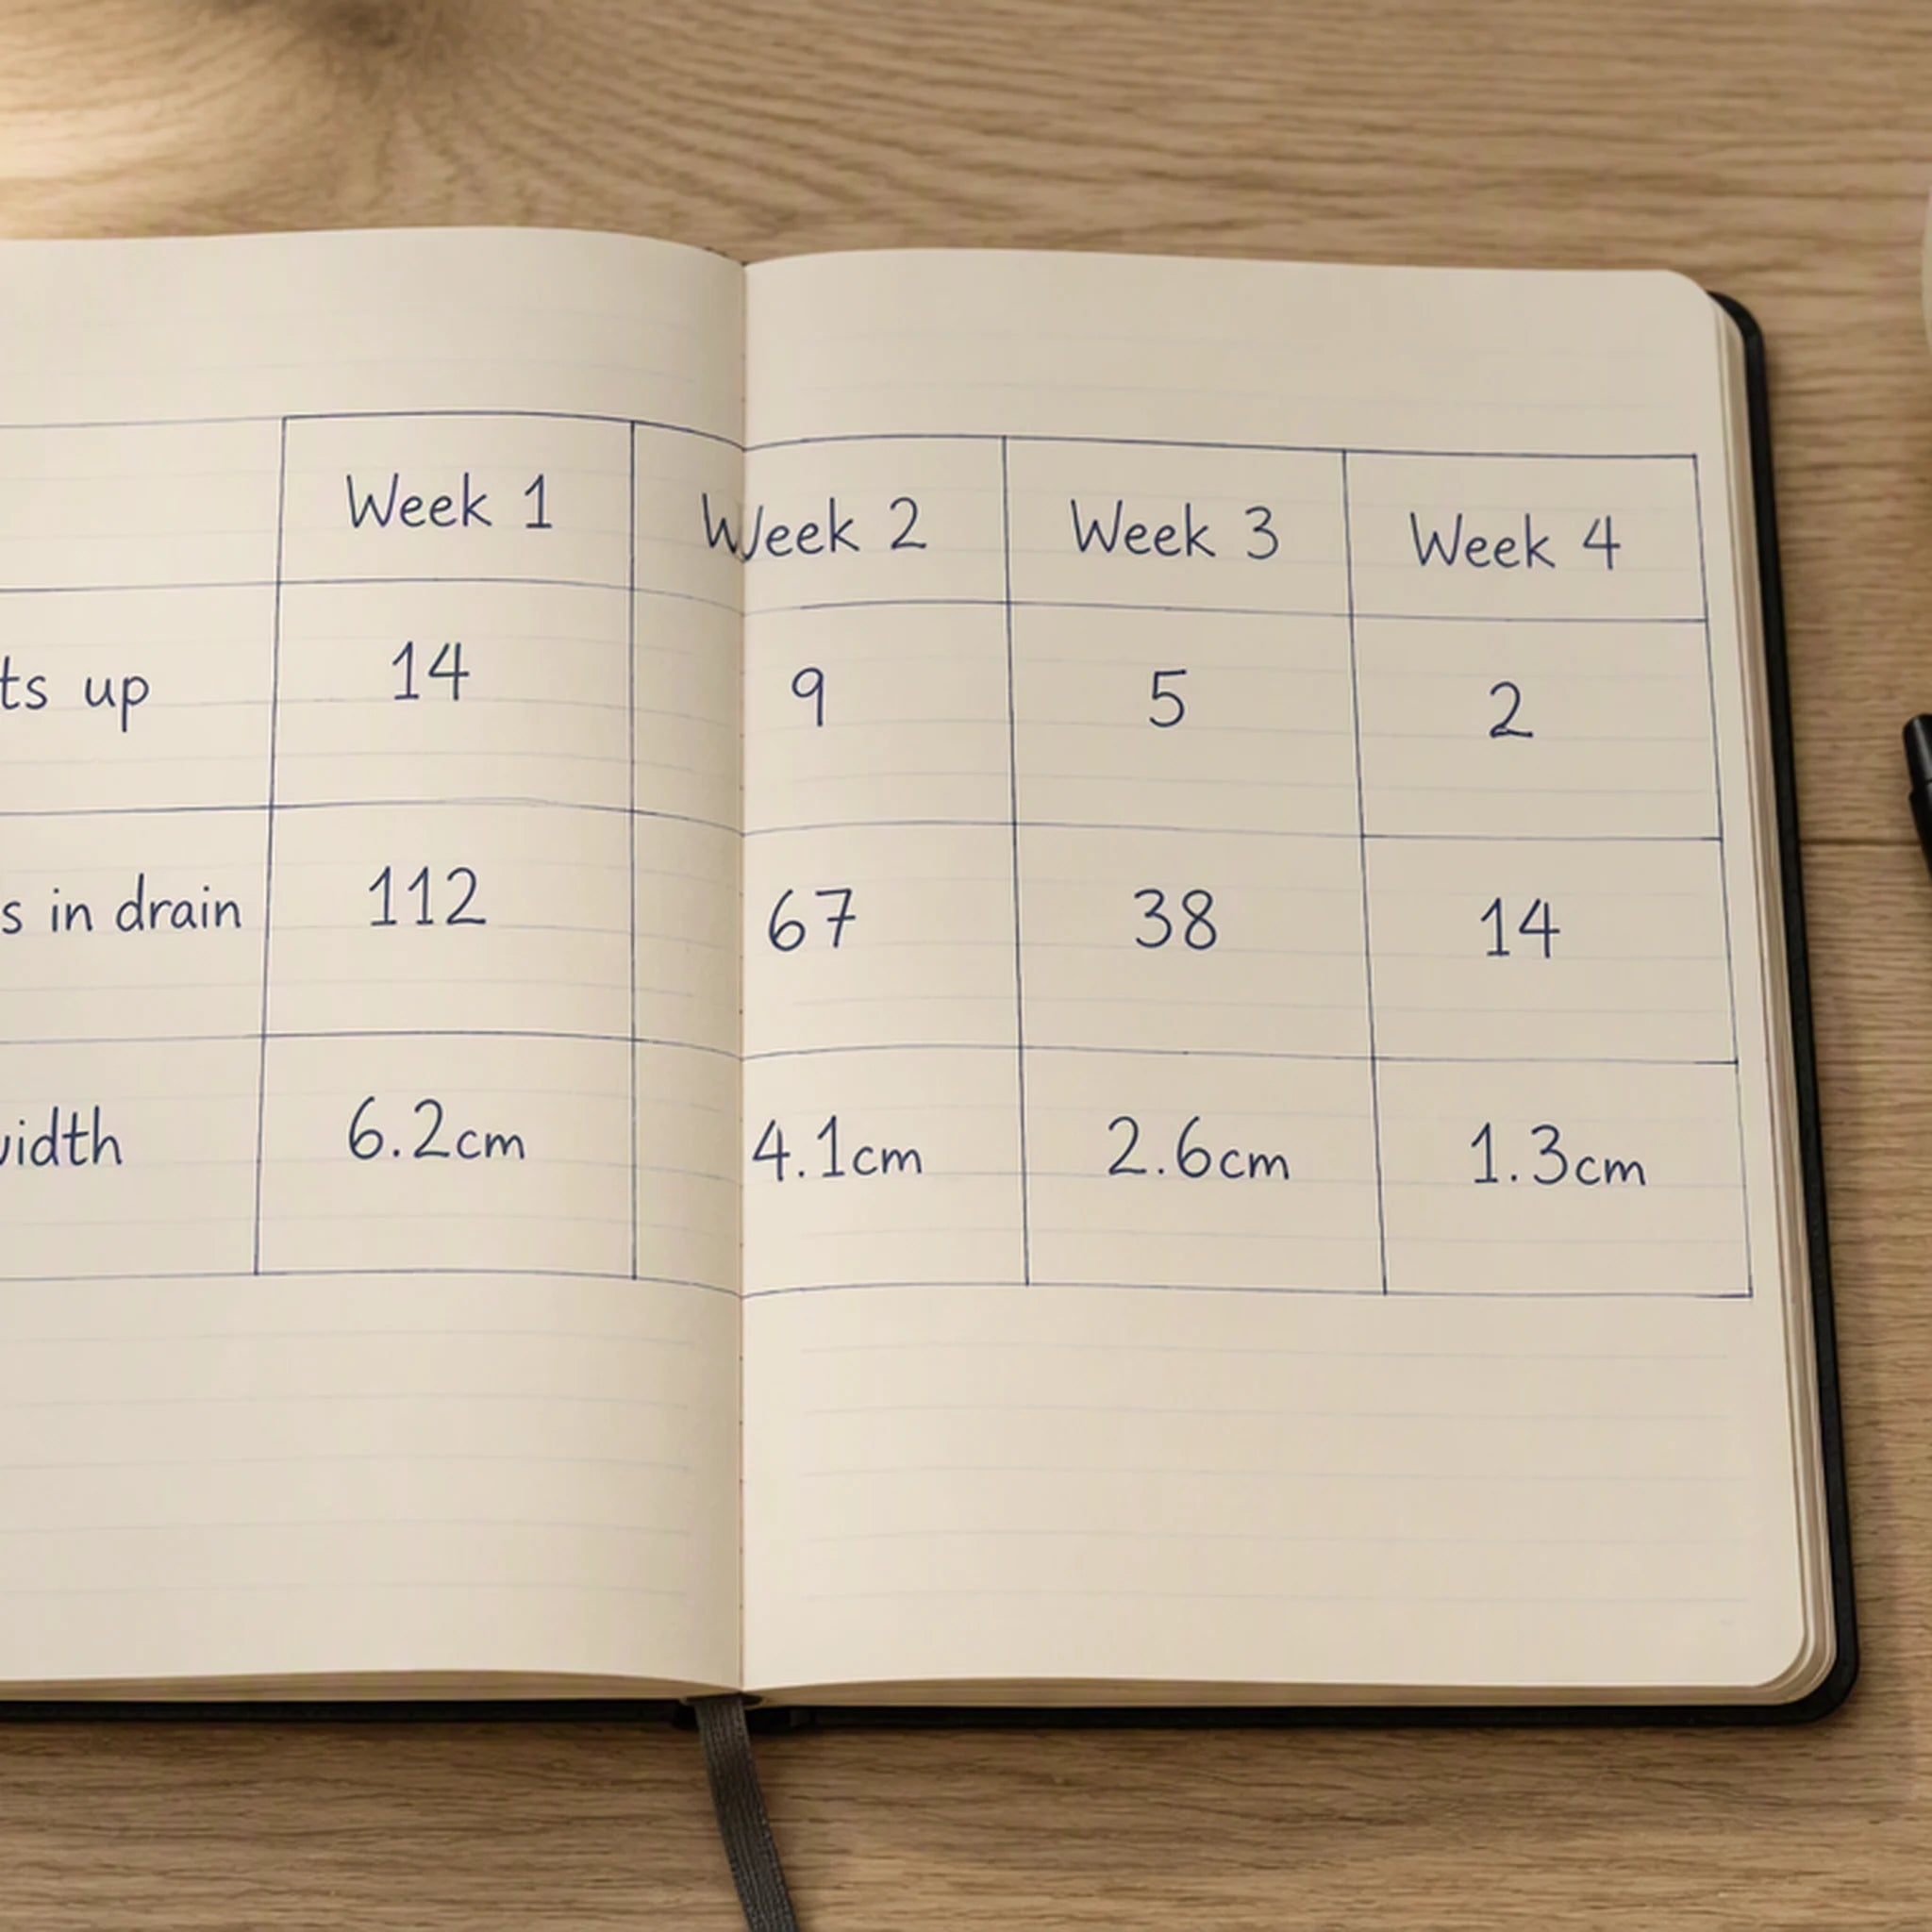 Week 1 Week 2 Week 3 Week 4
up 14 9 5 2
in drain 112 67 38 14
6.2cm 4.1cm 2.6cm 1.3cm